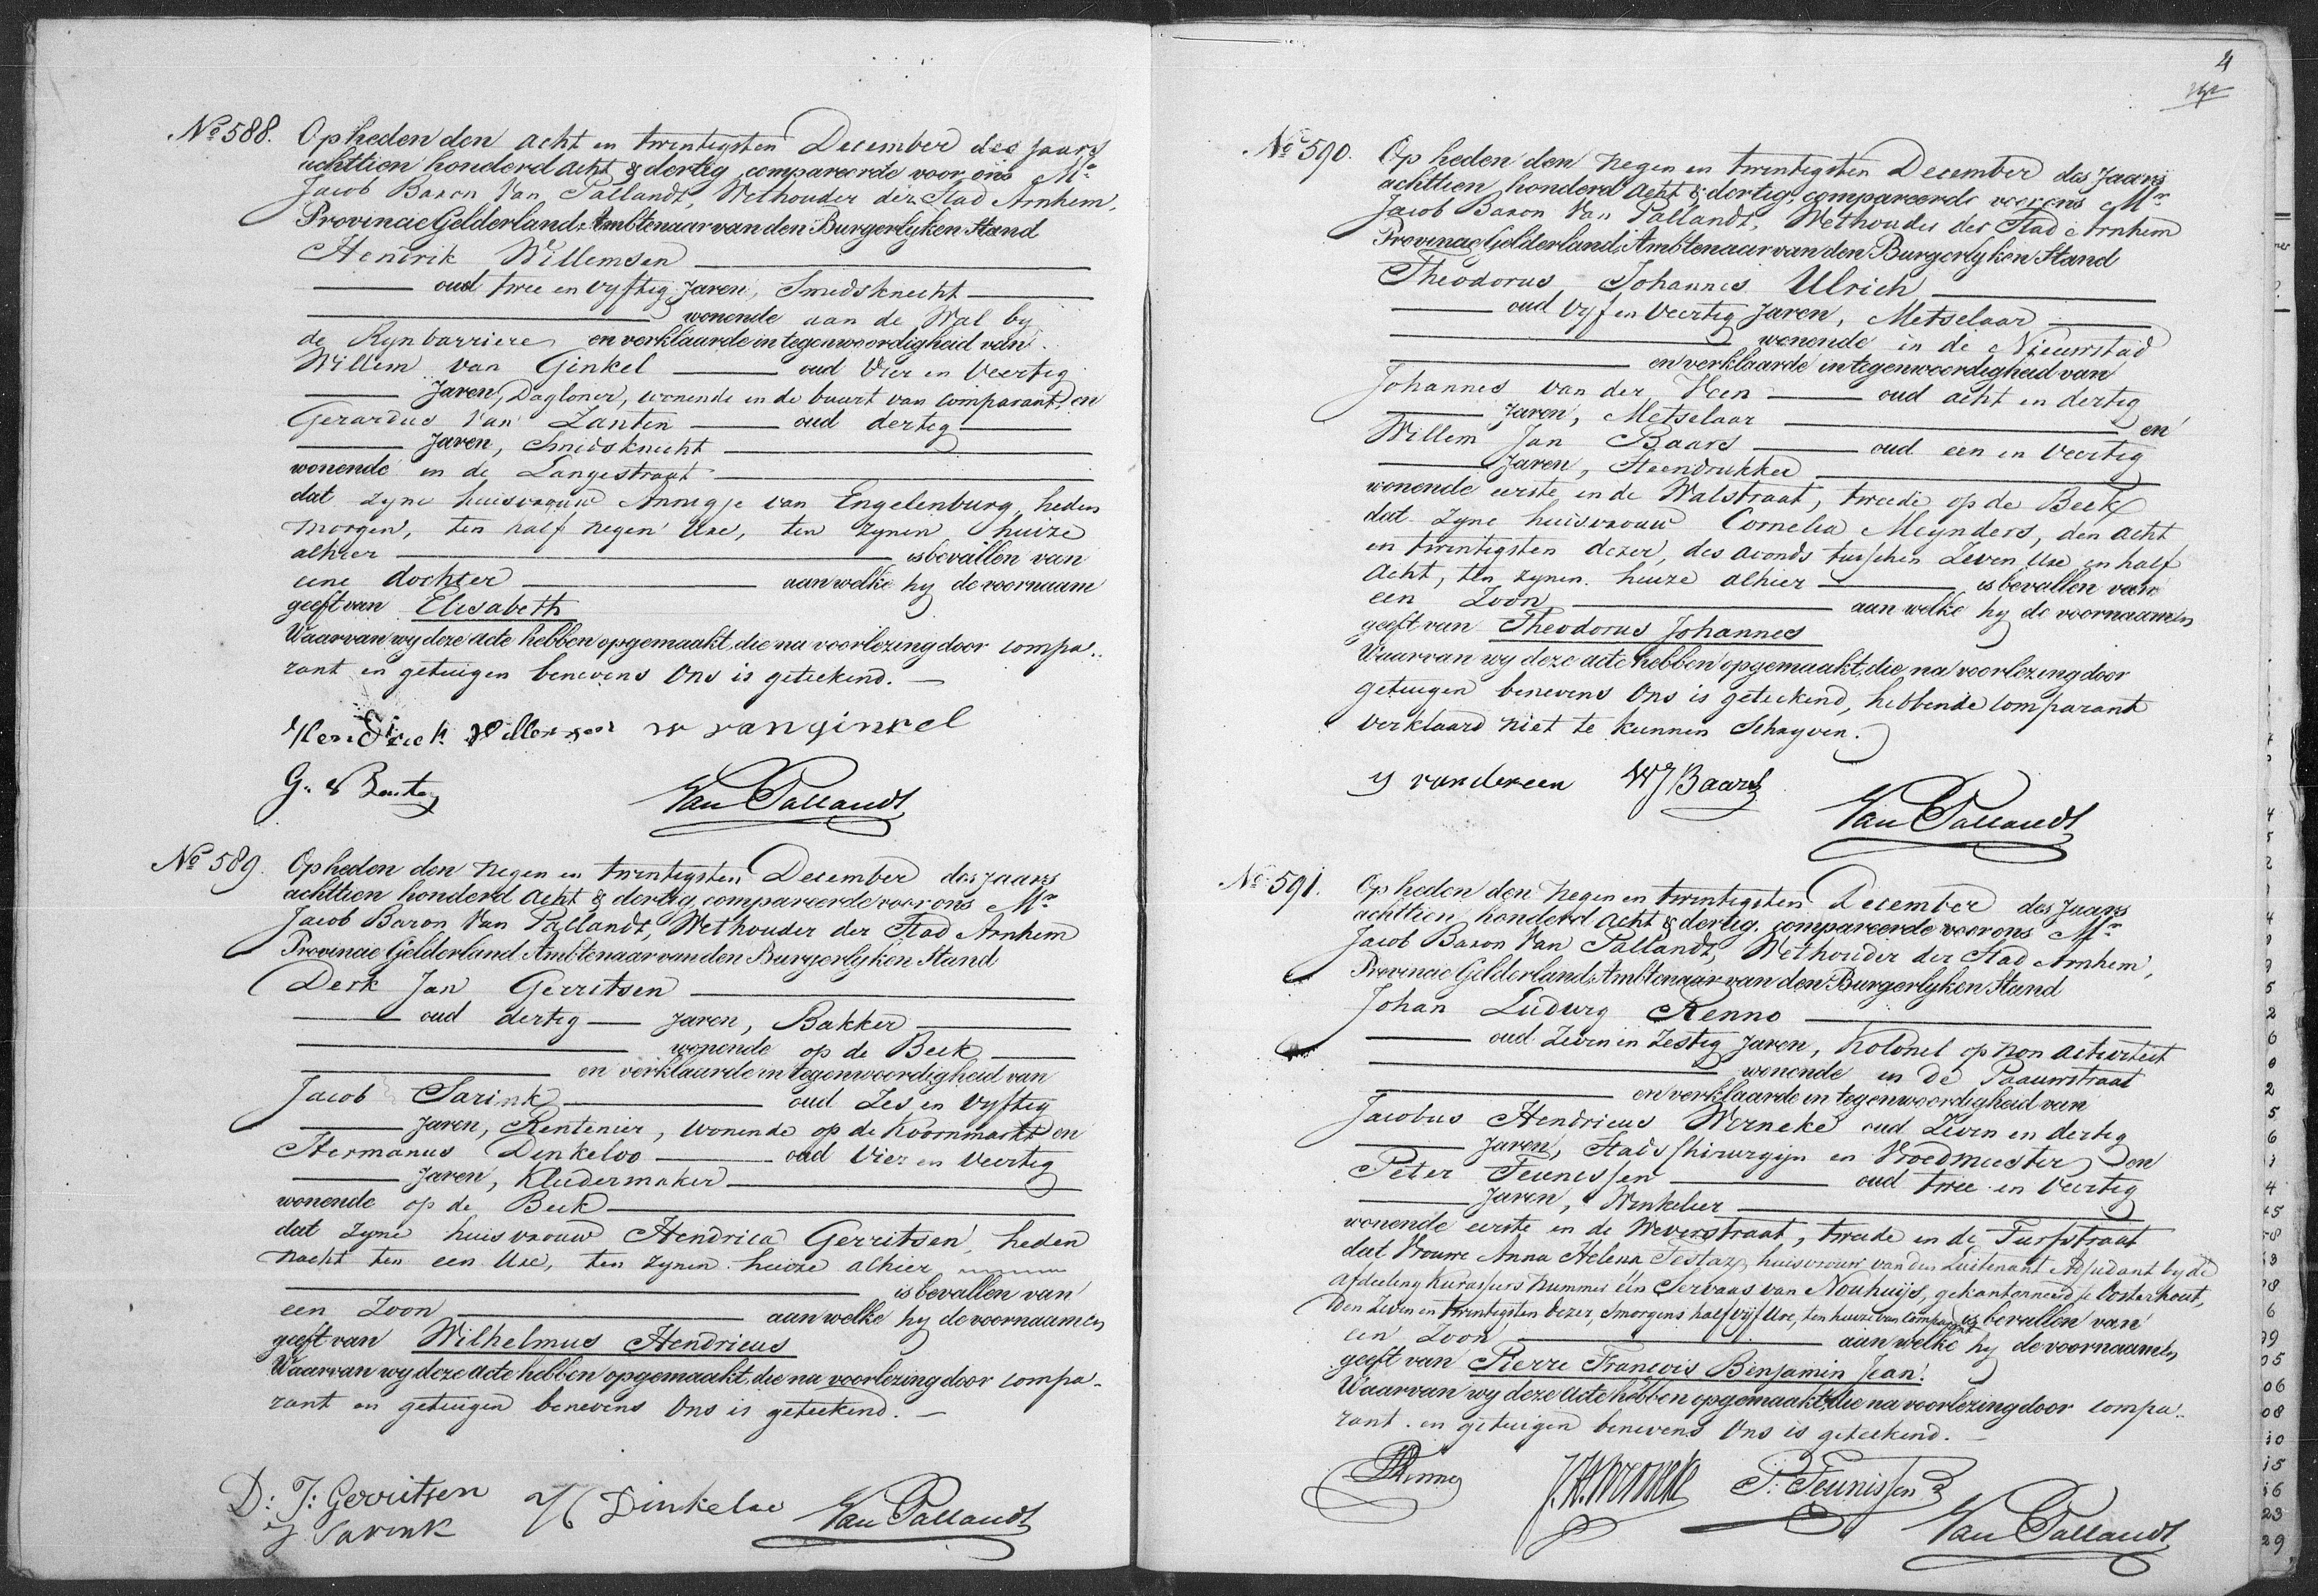 No 588. Op heden den acht en twintigsten December des Jaars
achttien honderd acht & dertig, compareerde voor ons Mr
Jacob Baron Van Pallandt, Wethouder der Stad Arnhem,
Provincie Gelderland, Ambtenaar van den Burgerlyken Stand
Hendrik Willemsen
oud twee en vyftig Jaren, Smidsknecht
wonende aan de Wal by
de Rynbarriere en verklaarde in tegenwoordigheid van
Willem van Ginkel oud Vier en Veertig
Jaren, Dagloner, wonende in de buurt van comparant, en
Gerardus Van Zanten oud dertig
Jaren, Smidsknecht
wonende in de Langestraat
dat zyne huisvrouw Annegje van Engelenburg, heden
morgen, ten half negen Ure, ten zynen huize
alhier is bevallen van
eene dochter aan welke hy de voornaam
geeft van Elisabeth
Waarvan wy deze acte hebben opgemaakt, die na voorlezing door compa-
rant en getuigen benevens Ons is geteekend.
Hendriek Willemsen w van ginkel
G. v Zanten Van Pallandt
No 589. Op heden den negen en twintigsten December des Jaars
achttien honderd acht & dertig, compareerde voor ons Mr
Jacob Baron Van Pallandt, Wethouder der Stad Arnhem
Provincie Gelderland, Ambtenaar van den Burgerlyken Stand
Derk Jan Gerritsen
oud dertig Jaren, Bakker
wonende op de Beek
en verklaarde in tegenwoordigheid van
Jacob Sarink oud Zes en Vyftig
Jaren, Rentenier, wonende op de Koornmarkt en
Hermanus Dinkeloo oud Vier en Veertig
Jaren, Kleedermaker
wonende op de Beek
dat zyne huisvrouw Hendrica Gerritsen, heden
nacht ten een Ure, ten zynen huize alhier
is bevallen van
een Zoon aan welke hy de voornaamen
geeft van Wilhelmus Hendricus
Waarvan wy deze acte hebben opgemaakt, die na voorlezing door compa-
rant en getuigen benevens Ons is geteekend.
D: J: Gerritsen H Dinkeloo Van Pallandt
J Sarink
4
No 590. Op heden den negen en twintigsten December des Jaars
achttien honderd acht & dertig, compareerde voor ons Mr
Jacob Baron Van Pallandt, Wethouder der Stad Arnhem
Provincie Gelderland, Ambtenaar van den Burgerlyken Stand
Theodorus Johannes Ulrich
oud Vyf en Veertig Jaren, Metselaar
wonende in de Nieuwstad
en verklaarde in tegenwoordigheid van
Johannes van der Veen oud acht en dertig
Jaren, Metselaar en
Willem Jan Baars oud een en Veertig
Jaren, Steendrukker
wonende eerste in de Walstraat, tweede op de Beek
dat zyne huisvrouw Cornelia Meynders, den acht
en twintigsten dezer, des avonds tusschen Zeven Ure en half
Acht, ten zynen huize alhier is bevallen van
een Zoon aan welke hy de voornaamen
geeft van Theodorus Johannes
Waarvan wy deze acte hebben opgemaakt, die na voorlezing door
getuigen benevens Ons is geteekend, hebbende comparant
verklaard niet te kunnen Schryven.
J van dereen WJ Baars
Van Pallandt
No 591. Op heden den negen en twintigsten December des Jaars
achttien honderd acht & dertig, compareerde voor ons Mr
Jacob Baron Van Pallandt, Wethouder der Stad Arnhem,
Provincie Gelderland, Ambtenaar van den Burgerlyken Stand
Johan Ludwig Renno
oud Zeven en Zestig Jaren, Kolonel op non activiteit
wonende in de Paauwstraat
en verklaarde in tegenwoordigheid van
Jacobus Hendricus Werneke oud Zeven en dertig
Jaren, Stads Chirurgyn en Vroedmeester en
Peter Teunissen oud twee en Veertig
Jaren, Winkelier
wonende eerste in de Weverstraat, tweede in de Turfstraat
dat Vrouwe Anna Helena Testas, huisvrouw van den Luitenant Adjudant by de
afdeeling Kurassiers nummer één Servaas van Nouhuijs, gekantonneerd te Oosterhout,
Den Zeven en twintigsten dezer, smorgens half vijf Ure, ten huize van Comparant is bevallen van
een Zoon aan welke hy de voornaamen
geeft van Pierre François Benjamin Jean.
Waarvan wy deze acte hebben opgemaakt, die na voorlezing door compa-
rant en getuigen benevens Ons is geteekend.
Renno J.H. Werneke P: Teunissen
Van Pallandt